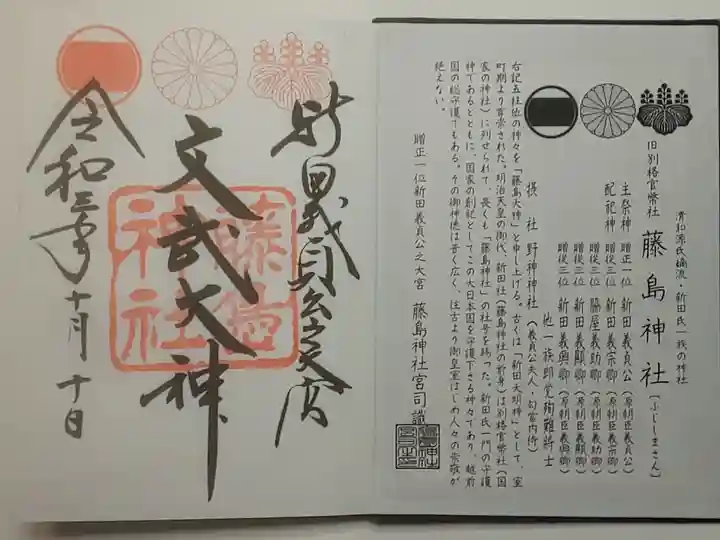 新田義貞公之大宮
文武大神
藤島神社
令和三年十月十日
清和源氏嫡流・新田氏一族の神社
旧別格官幣社 藤島神社〔ふじしまさん〕
主祭神 贈正一位 新田義貞公（源朝臣義貞公）
配祀神 贈従三位 新田義宗卿（源朝臣義宗卿）
贈従三位 脇屋義助卿（源朝臣義助卿）
贈従三位 新田義顕卿（源朝臣義顕卿）
贈従三位 新田義興卿（源朝臣義興卿）
他一族郎党殉難将士
摂社 野神神社（義貞公夫人 勾当内侍）
右記五柱位の神々を「藤島大神」と申し上げる。古くは「新田大明神」として、室
町期より官祟された。明治天皇の御代、新田社（藤島神社の前身）は別格官幣社（国
家の神社）に列せられて、長くも「藤島神社」の社号を賜った。新田氏一門の守護
神であるとともに、国家の創祀としてこの大日本国を守護下さる神々であり、越前
国の総守護でもある。その御神徳は普く広く、往古より御皇室はじめ人々の崇敬が
絶えない。
贈正一位新田義貞公之大宮 藤島神社宮司 識